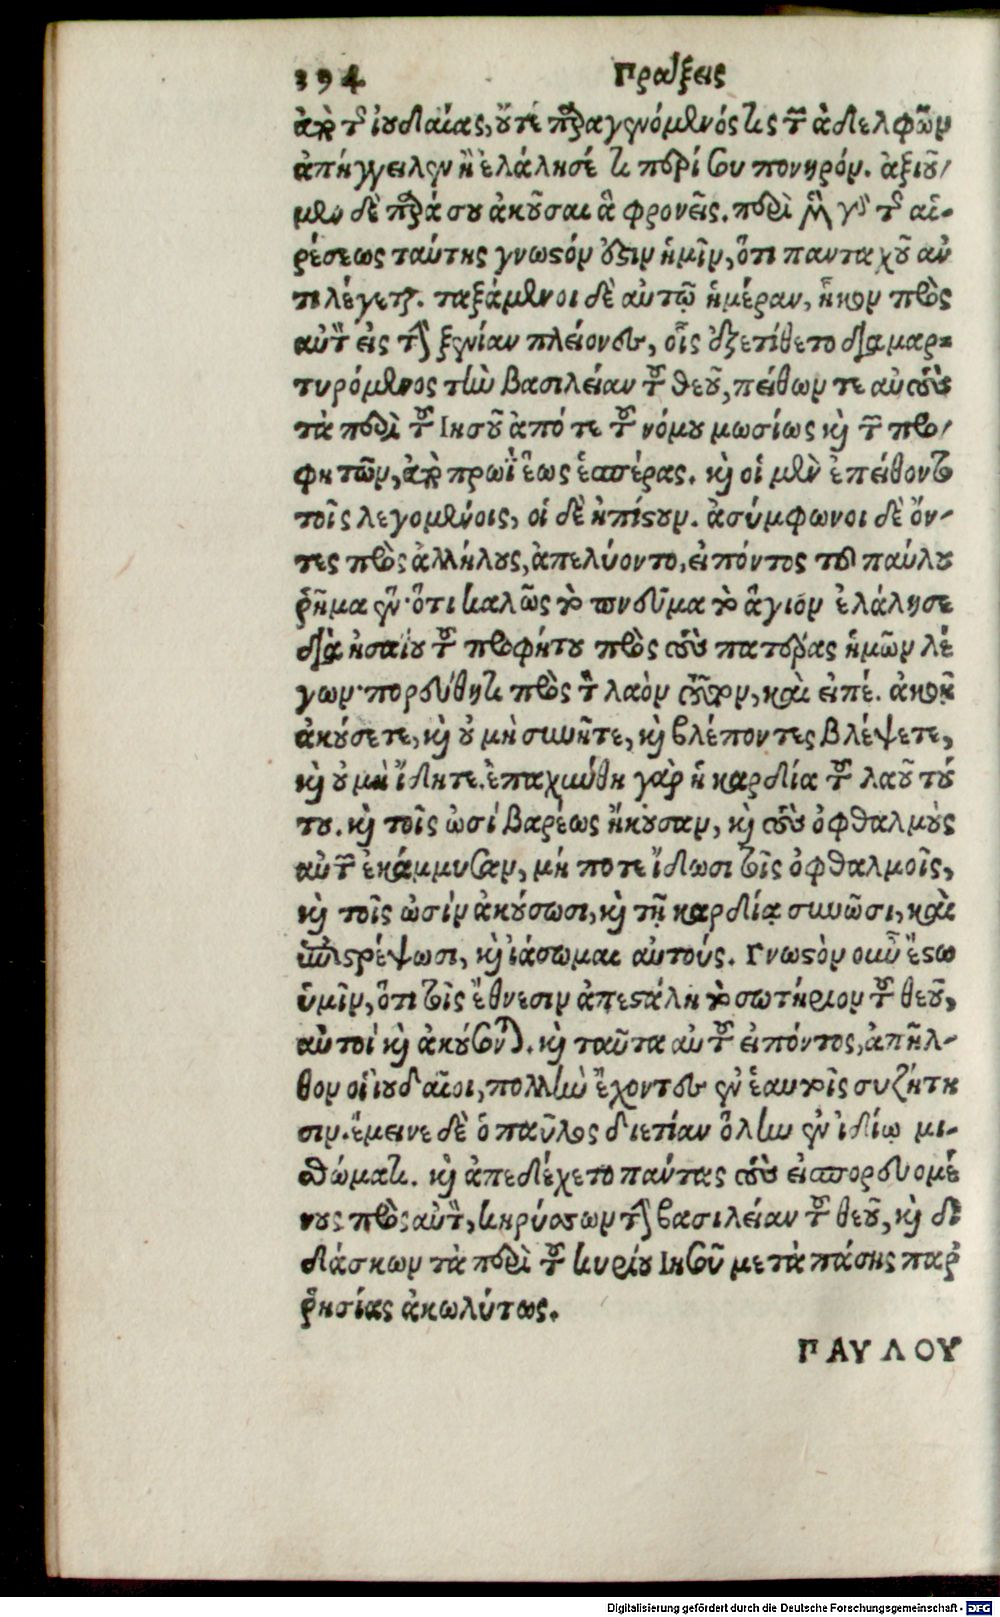 394 Πράξεις
ἀπὸ τῆς ἰουδαίας, οὔτε παραγενόμενός τις τῶν ἀδελφῶν
ἀπήγγειλεν ἢ ἐλάλησέ τι περί σου πονηρόν. ἀξιοῦ/
μεν δὲ παρὰ σου ἀκοῦσαι ἃ φρονεῖς. περὶ μὲν γὸ τῆς αἱ-
ρέσεως ταύτης γνωστόν ἐστιν ἡμῖν, ὅτι πανταχοῦ ἀν
τιλέγεται. ταξάμενοι δὲ αὐτῷ ἡμέραν, ἧκον πρὸς
αὐτὸν εἰς τὴν ξενίαν πλείονες, οἷς ἐξετίθετο διαμαρ-
τυρόμενος τὴν βασιλείαν τοῦ θεοῦ, πείθων τε αὐτοὺς
τὰ περὶ τοῦ Ιησοῦ ἀπό τε τοῦ νόμου μωσέως καὶ τῶν προ/
φητῶν, ἀπὸ πρωῒ ἕως ἑσπέρας. καὶ οἱ μὲν ἐπείθοντο
τοῖς λεγομένοις, οἱ δὲ ἠπίστουν. ἀσύμφωνοι δὲ ὄν-
τες πρὸς ἀλλήλους, ἀπελύοντο, εἰπόντος τοῦ παύλου
ῥῆμα ἕν· ὅτι καλῶς τὸ πνεῦμα τὸ ἅγιόν ἐλάλησε
διὰ ἠσαΐου τοῦ προφήτου πρὸς τοὺς πατέρας ἡμῶν λέ
γων· πορεύθητι πρὸς τὸν λαὸν τοῦτον, καὶ εἰπέ. ἀκοῇ
ἀκούσετε, καὶ οὐ μὴ συνῆτε, καὶ βλέποντες βλέψετε,
καὶ οὐ μὴ ἴδητε. ἐπαχύνθη γὰρ ἡ καρδία τοῦ λαοῦ τού
του. καὶ τοῖς ὠσί βαρέως ἤκουσαν, καὶ τοὺς ὀφθαλμοὺς
αὐτῶν ἐκάμμυσαν, μή ποτε ἴδωσι τοῖς ὀφθαλμοῖς,
καὶ τοῖς ὠσίν ἀκούσωσι, καὶ τῇ καρδίᾳ συνῶσι, καὶ
ἐπιστρέψωσι, καὶ ἰάσωμαι αὐτούς. Γνωστὸν οὖν ἔστω
ὑμῖν, ὅτι τοῖς ἔθνεσιν ἀπεστάλη τὸ σωτήριον τοῦ θεοῦ,
αὐτοί καὶ ἀκούσονται. καὶ ταῦτα αὐτοῦ εἰπόντος, ἀπῆλ-
θον οἱ ἰουδαῖοι, πολλὴν ἔχοντες ἐν ἑαυτοῖς συζήτη
σιν. ἔμεινε δὲ ὁ παῦλος διετίαν ὅλην ἐν ἰδίῳ μι-
σθώματι. καὶ ἀπεδέχετο πάντας τοὺς εἰσπορευομέ
νους πρὸς αὐτὸν, κηρύσσων τὴν βασιλείαν τοῦ θεοῦ, καὶ δι
δάσκων τὰ περὶ τοῦ κυρίου Ιησοῦ μετὰ πάσης παρ
ῥησίας ἀκωλύτως.
ΠΑΥΛΟΥ
Digitalisierung gefördert durch die Deutsche Forschungsgemeinschaft - DFG